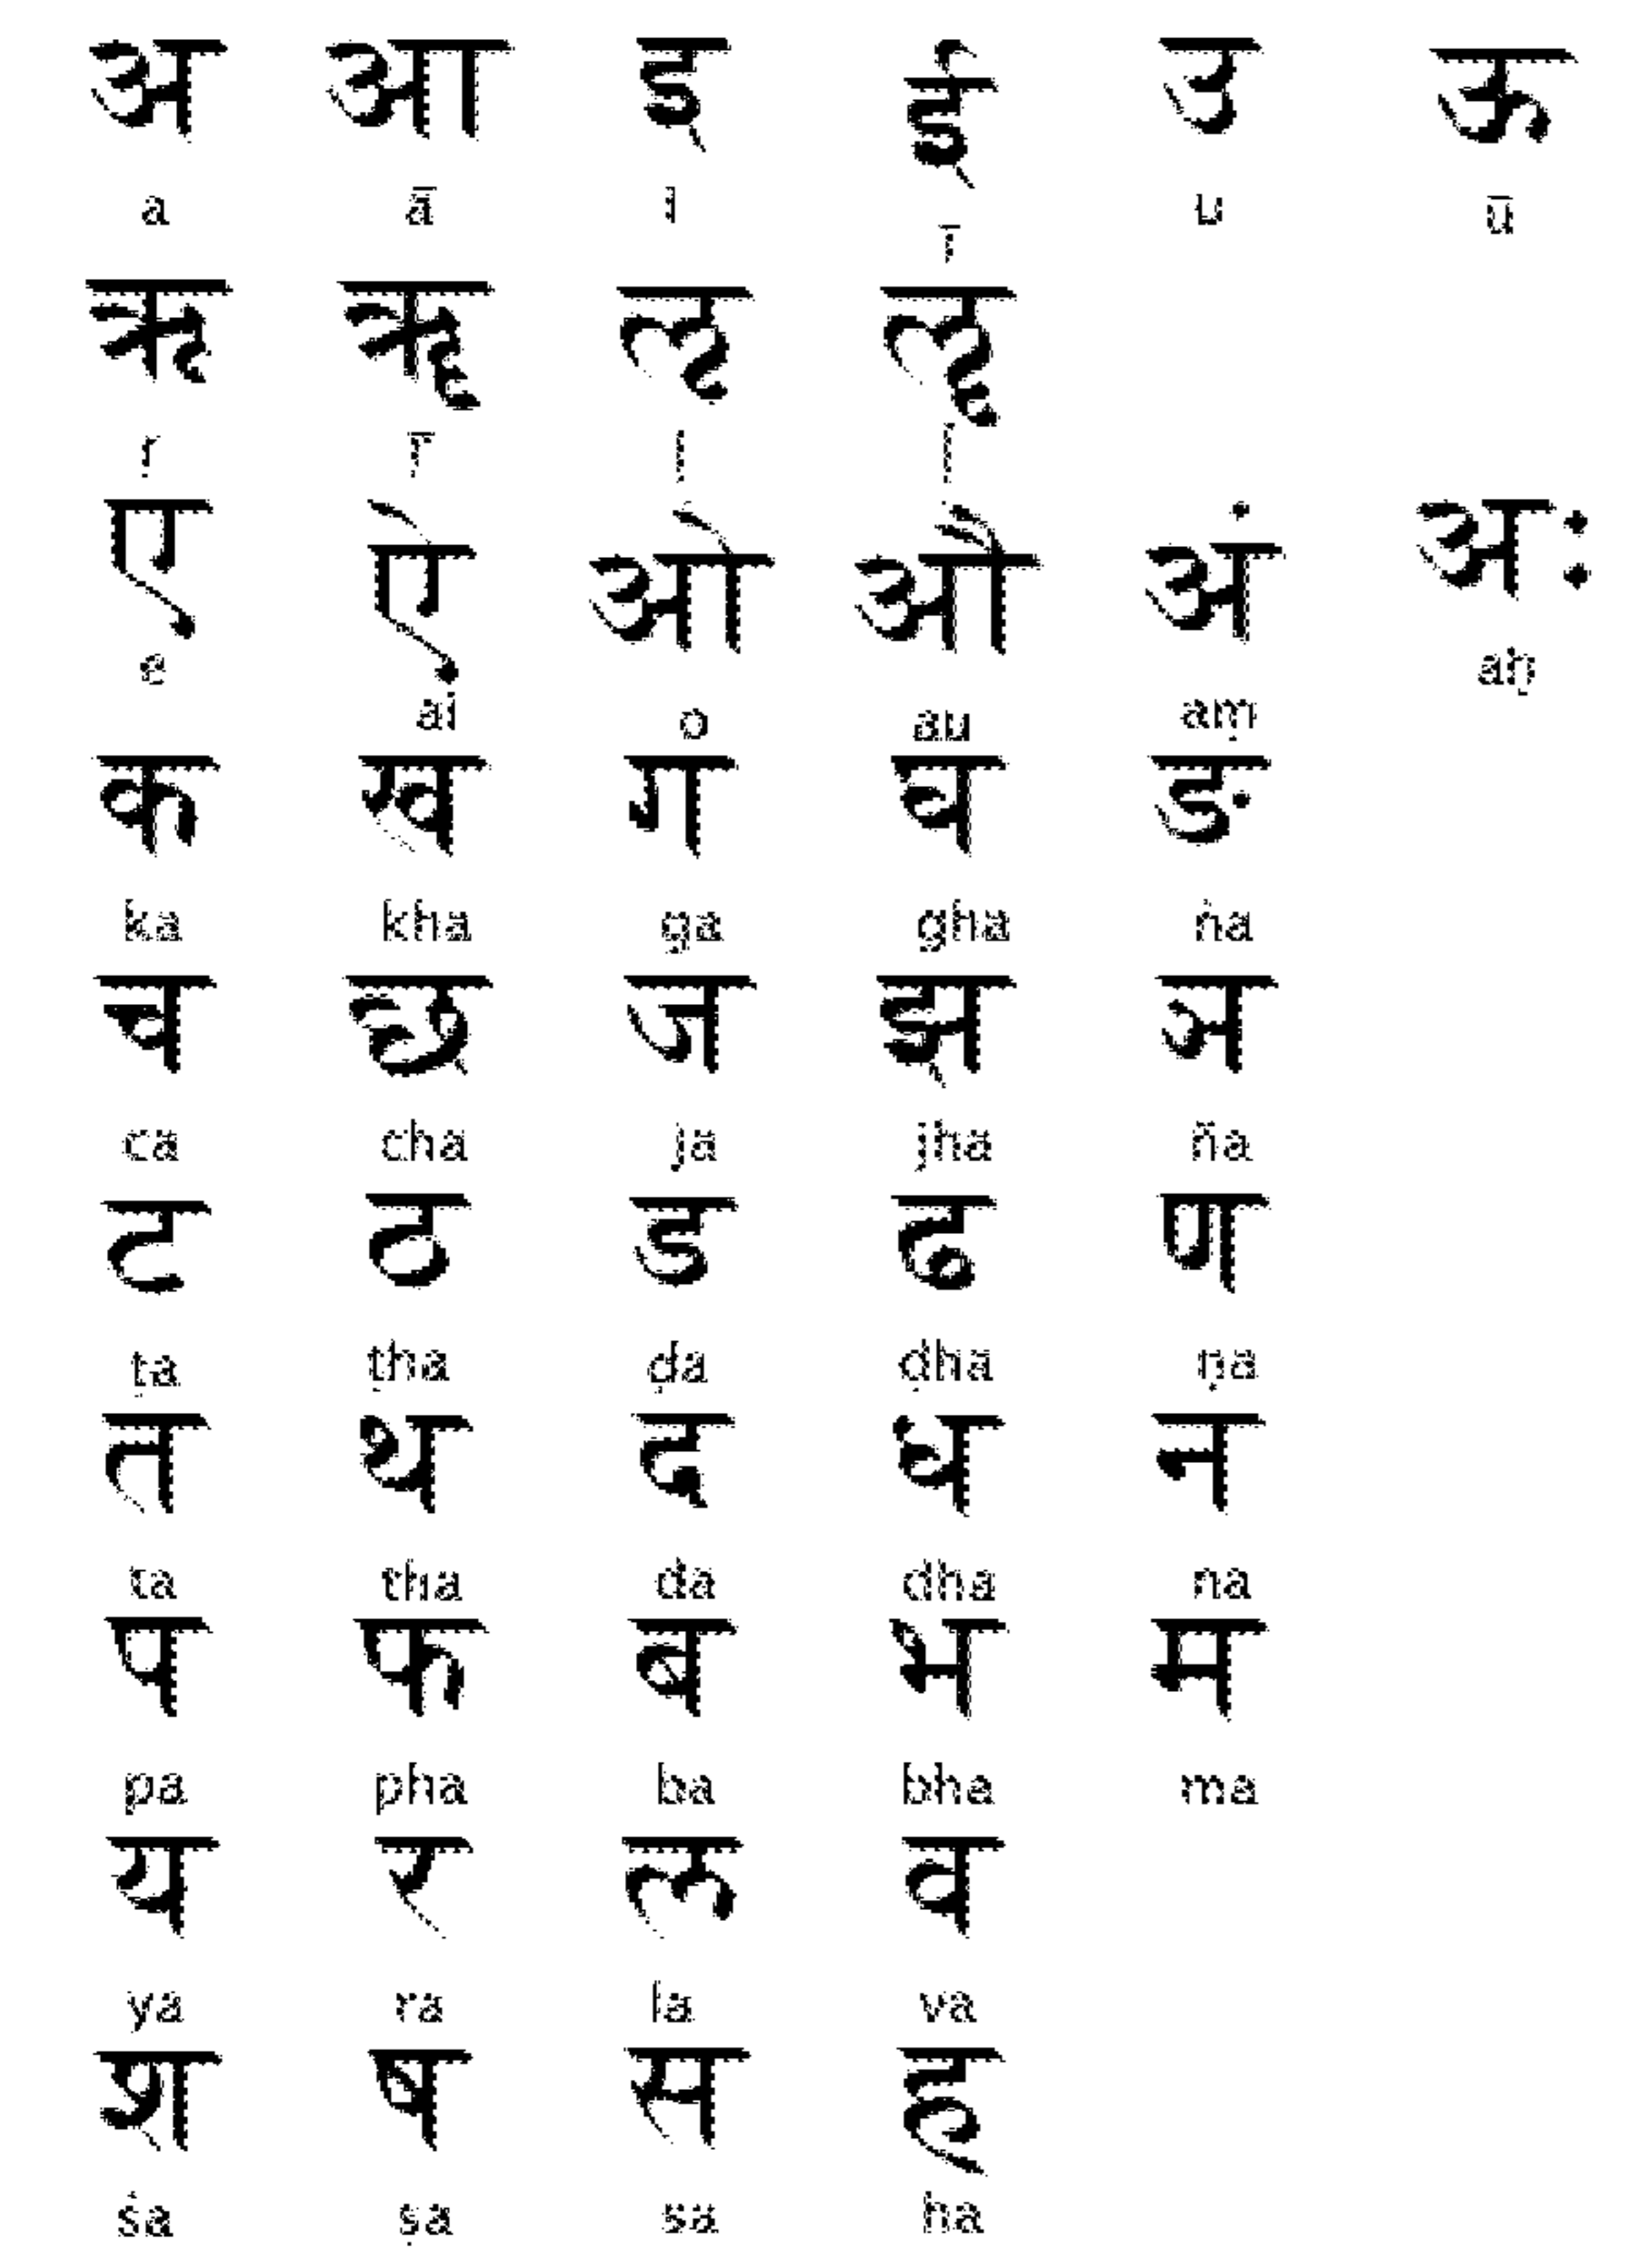 अ आ इ ई उ ऊ
a ā i ī u ū
ऋ ॠ ऌ ॡ
ṛ ṝ ḷ ḹ
ए ऐ ओ औ अं अः
e ai o au aṃ aḥ
क ख ग घ ङ
ka kha ga gha ṅa
च छ ज झ ञ
ca cha ja jha ña
ट ठ ड ढ ण
ṭa ṭha ḍa ḍha ṇa
त थ द ध न
ta tha da dha na
प फ ब भ म
pa pha ba bha ma
य र ल व
ya ra la va
श ष स ह
śa ṣa sa ha